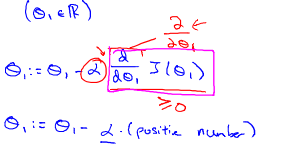 (θ₁ ∈ ℝ)
∂/∂θ₁
θ₁ := θ₁ - α d/dθ₁ J(θ₁)
≥ 0
θ₁ := θ₁ - α · (positie number)